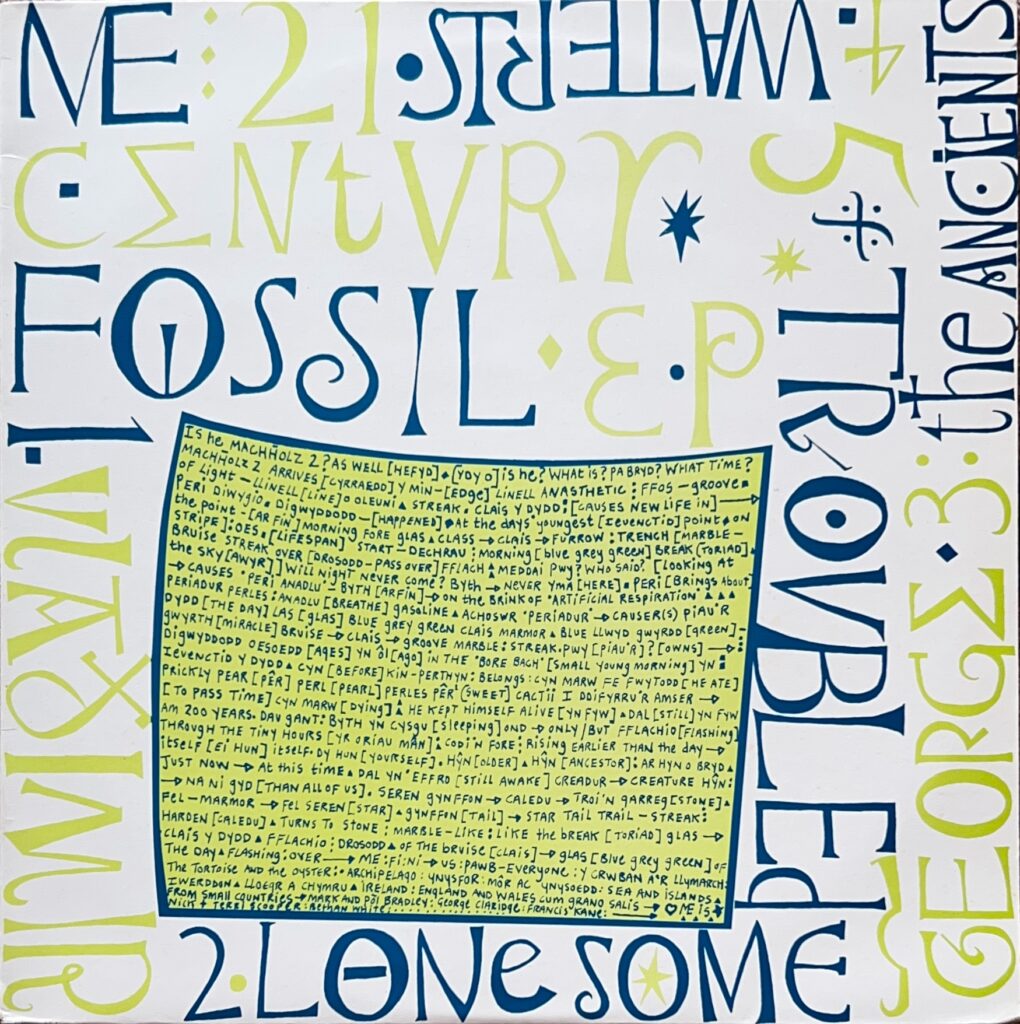 ME : 21
CENTVRY
FOSSIL · E·P
1. MIMIR
2·LONESOME
GEORGE · 3: the ANCiENTS
4 · WATERTS ·
5 TROVBLED
Is he MACHHOLZ 2? AS WELL [HEFYD] ◆ (YDY O) is he? WHAT is? PA BRYD? WHAT TiME?
MACHHOLZ 2 ARRIVES [CYRRAEDD] Y MIN-[EDGE] LINELL ANASTHETIC : FFOS - GROOVE ▲
OF Light - LLINELL [LINE] O OLEUNI ▲ STREAK. CLAIS Y DYDD : [CAUSES NEW LIFE iN] →
PERI DIWYGIO. DigwyDDODD - [HAPPENED] ◆ At the days youngest [IEVENCTID] POINT ◆ ON
the point - [AR FiN] MORNING FORE GLAS ▲ CLASS → CLAIS → FURROW : TRENCH [MARBLE -
STRIPE] : OES. [LIFESPAN] START - DECHRAU : MORNING [blue grey green] BREAK (TORIAD)
BRUISE STREAK OVER [DROSODD - PASS OVER] FFLACH ▲ MEDDAI PWY? WHO SAID? [LOOKING AT
the SKY [AWYR]] Will NIGHT NEVER COME? BYTH → NEVER YMA [HERE] · PERI [BRINGS ABOUT]
→ CAUSES · PERI ANADLU - BYTH [ARFiN] → ON THE BRINK OF "ARTIFICIAL RESPIRATION" ▲ ▲ ▲
PERIADUR PERLES : ANADLU [BREATHE] GASOLINE ▲ ACHOSWR "PERIADUR → CAUSER(S) PIAU'R
DYDD [THE DAY] LAS [glas] BLUE GREY GREEN CLAIS MARMOR ▲ BLUE LLWYD GWYRDD [GREEN].
GWYRTH [MIRACLE] BRUISE → CLAIS → GROOVE MARBLE : STREAK. PWY [PIAU'R]? [OWNS] →
DigwyDDODD OESOEDD [AGES] YN ÔL [AGO] IN THE "BORE BACH" [SMALL YOUNG MORNING] YN :
IEVENCTID Y DYDD ▲ CYN [BEFORE] KIN - PERTHYN : BELONGS : CYN MARW FE FWYTODD [HE ATE]
PRICKLY PEAR [PÊR] PERL [PEARL] PERLES PÊR (SWEET) CACTII I DDIFYRRU'R AMSER →
[TO PASS TIME] CYN MARW [DYING] ▲ HE KEPT HIMSELF ALIVE [YN FYW] ▲ DAL [STILL] YN FYW
AM 200 YEARS. DAU GANT : BYTH YN CYSGU [SLEEPING] OND → ONLY/BUT FFLACHIO [FLASHING]
THROUGH THE TINY HOURS [YR ORIAU MÂN] : CODI'N FORE : RISING EARLIER THAN THE DAY →
itSELF [EI HUN] itSELF. DY HUN [YOURSELF] · HŶN [OLDER] ▲ HŶN [ANCESTOR] : AR HYN O BRYD ▲
JUST NOW → At this time ▲ DAL YN EFFRO [STILL AWAKE] CREADUR → CREATURE HŶN :
→ NA NI GYD [THAN ALL OF US]. SEREN GYNFFON → CALEDU → TROI'N GARREG [STONE] ▲
FEL - MARMOR → FEL SEREN [STAR] ▲ GYNFFON [TAIL] → STAR TAIL TRAIL - STREAK :
HARDEN [CALEDU] ▲ TURNS TO STONE : MARBLE - LIKE : LIKE the BREAK [TORIAD] GLAS →
CLAIS Y DYDD ▲ FFLACHIO : DROSODD ▲ OF the BRUISE [CLAIS] → glas [Blue grey green] OF
THE DAY ▲ FLASHING : OVER → ME : Fi : Ni → US : PAWB - EVERYONE : Y CRWBAN A'R LLYMARCH :
THE TORTOISE AND THE OYSTER : ARCHIPELAGO : YNYSFOR : MÔR AC YNYSOEDD : SEA AND ISLANDS ▲
IWERDDON ▲ LLOEGR A CHYMRU ▲ IRELAND : ENGLAND AND WALES CUM GRANO SALIS → ♡ ME IS
FROM SMALL COUNTRIES → MARK AND PÔL BRADLEY : GEORGE CLARIDGE : FRANCIS KANE : →
NICK + TERRI SCOOPER : BETHAN WHITE